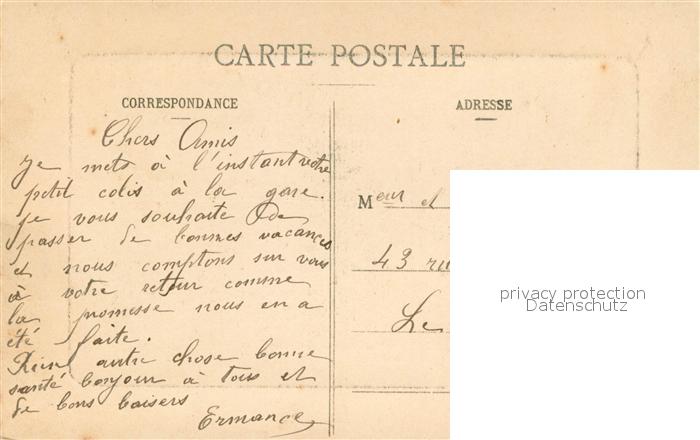 CARTE POSTALE
CORRESPONDANCE
Chers Amis
Je mets à l'instant votre
petit colis à la gare.
Je vous souhaite de
passer de bonnes vacances
et nous comptons sur vous
à votre retour comme
la promesse nous en a
été faite.
Rien autre chose bonne
santé bonjour à tous et
de bons baisers
Ermance
ADRESSE
Meur et
43 ru
Le
privacy protection
Datenschutz